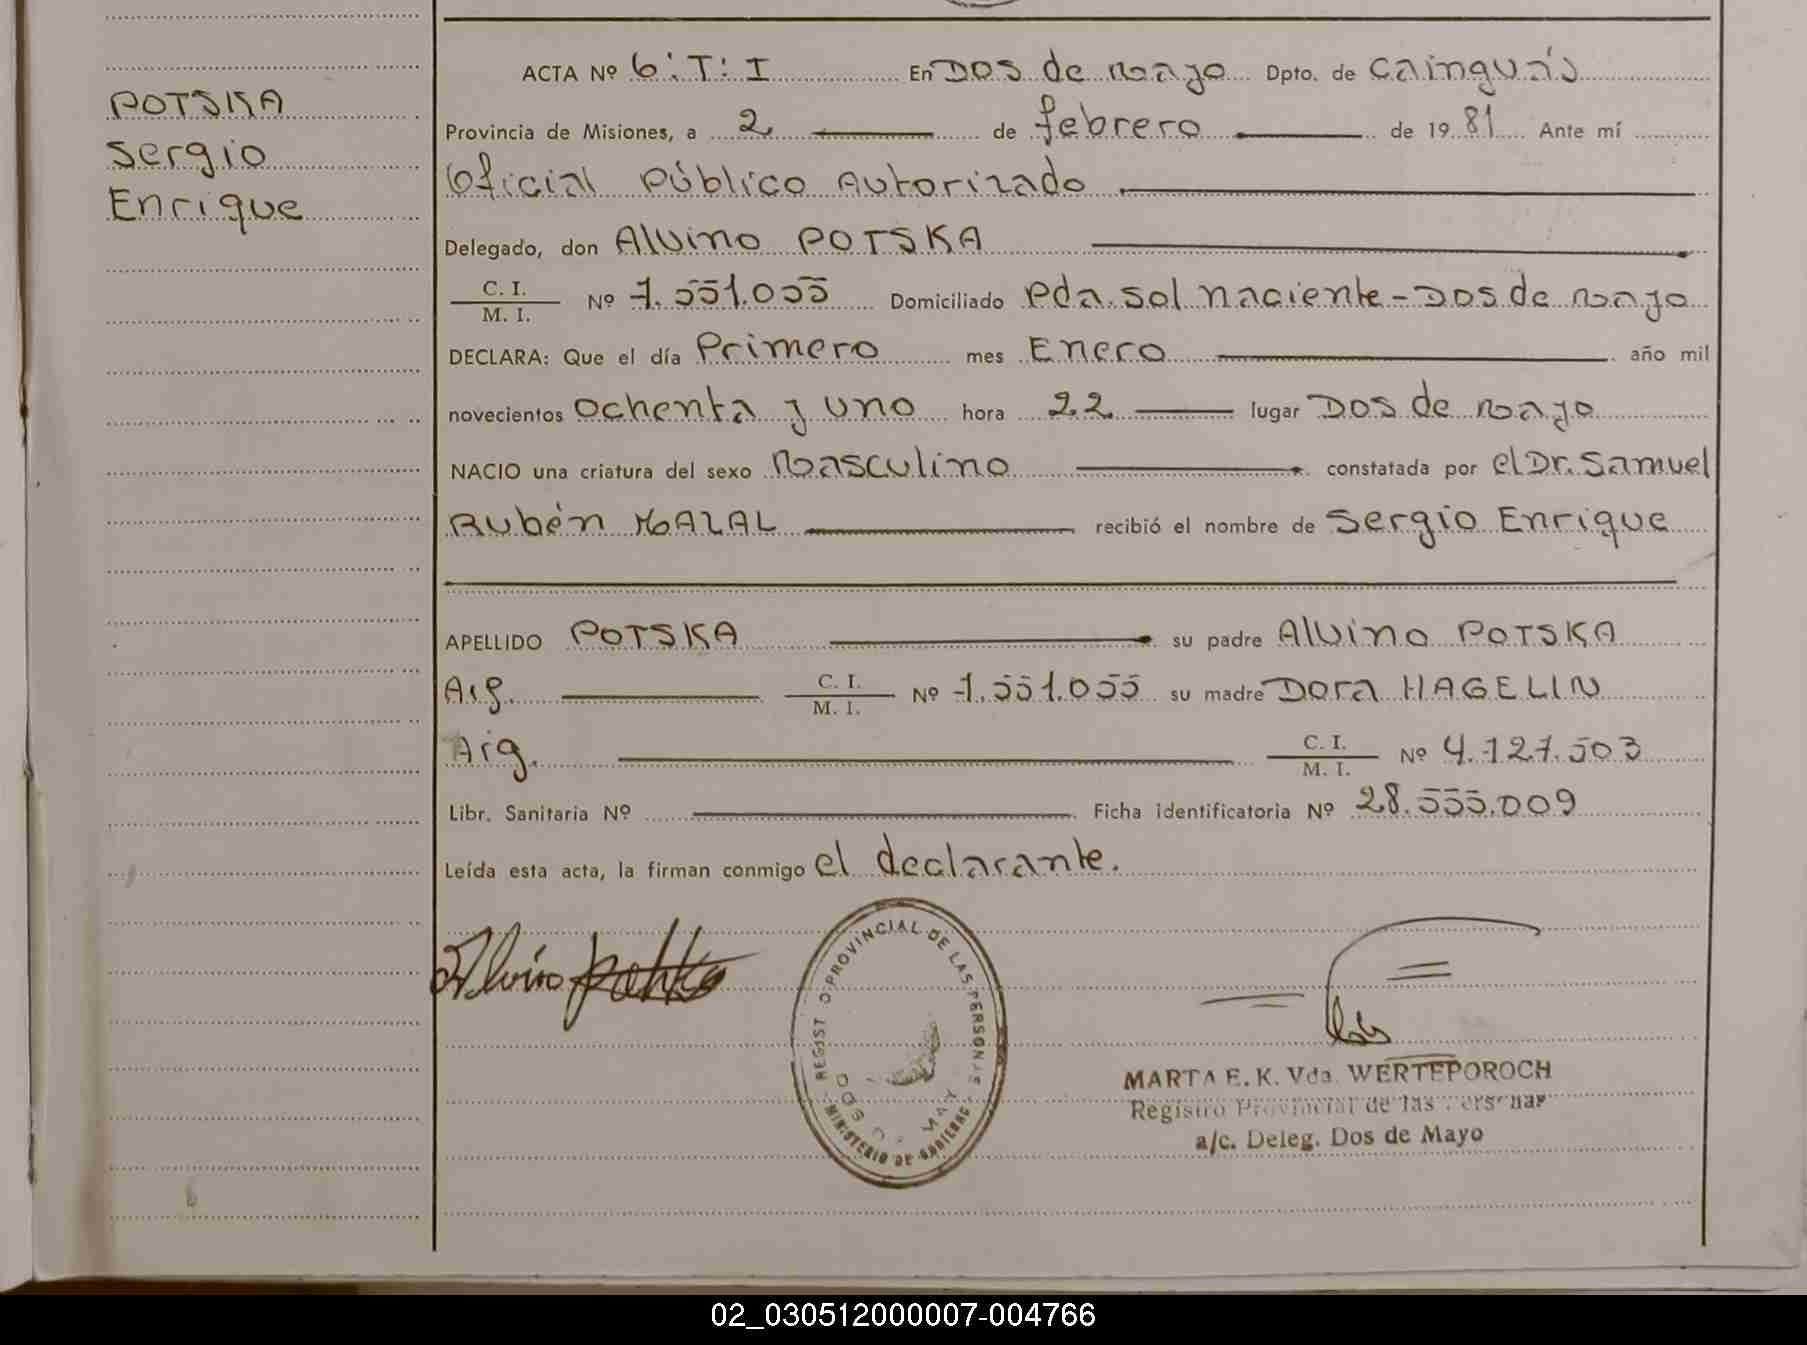 POTSKA
Sergio
Enrique
ACTA Nº 6: T: I En Dos de Mayo Dpto. de Cainguás
Provincia de Misiones, a 2 de febrero de 1981 Ante mí
Oficial Público Autorizado
Delegado, don Alvino POTSKA
C. I. / M. I. Nº 7.551.055 Domiciliado Pda. Sol Naciente - Dos de Mayo
DECLARA: Que el día Primero mes Enero año mil
novecientos ochenta y uno hora 22 lugar Dos de Mayo
NACIO una criatura del sexo Masculino constatada por el Dr. Samuel
Rubén MAZAL recibió el nombre de Sergio Enrique
APELLIDO POTSKA su padre Alvino POTSKA
Arg. C. I. / M. I. Nº 7.551.055 su madre Dora HAGELIN
Arg. C. I. / M. I. Nº 4.127.503
Libr. Sanitaria Nº Ficha identificatoria Nº 28.555.009
Leída esta acta, la firman conmigo el declarante.
Alvino Potska
REGIST O PROVINCIAL DE LAS PERSONAS
MINISTERIO DE GOBIERNO
DOS D MAY
MARTA E. K. Vda. WERTEPOROCH
Registro Provincial de las Personas
a/c. Deleg. Dos de Mayo
02_030512000007-004766